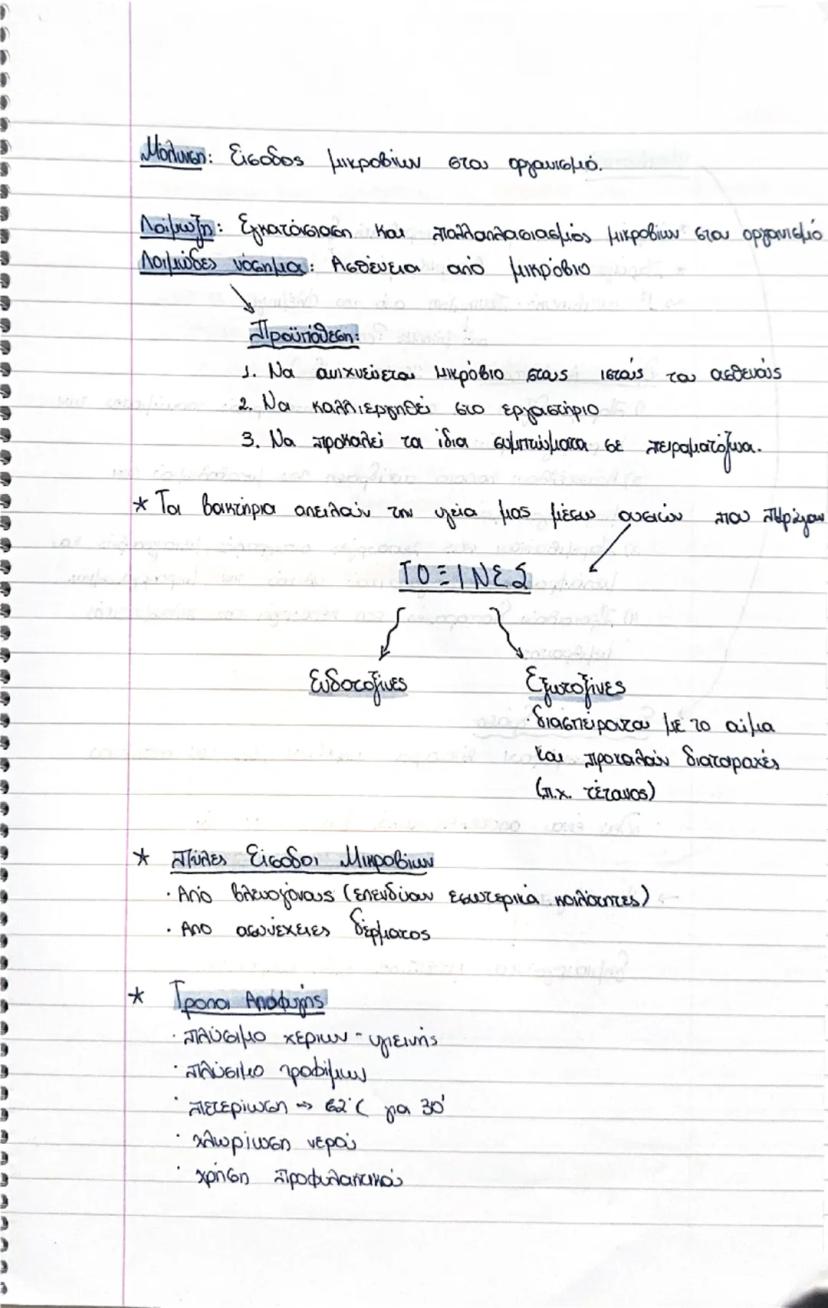 Μόλυνση: Είσοδος μικροβίων στον οργανισμό.
Λοίμωξη: Εγκατάσταση και πολλαπλασιασμός μικροβίων στον οργανισμό
Λοιμώδες νόσημα: Ασθένεια από μικρόβιο
Προϋπόθεση:
1. Να ανιχνεύεται μικρόβιο στους ιστούς του ασθενούς
2. Να καλλιεργηθεί στο εργαστήριο
3. Να προκαλεί τα ίδια συμπτώματα σε πειραματόζωα.
* Τα βακτήρια απειλούν την υγεία μας μέσω ουσιών που παράγουν
ΤΟΞΙΝΕΣ
Ενδοτοξίνες Εξωτοξίνες
· διασπείρονται με το αίμα
και προκαλούν διαταραχές
(π.χ. τέτανος)
* Πύλες Είσοδοι Μικροβίων
· Από βλεννογόνους (επενδύουν εσωτερικά κοιλότητες)
· Από ασυνέχειες δέρματος
* Τρόποι Αποφυγής
· πλύσιμο χεριών - υγιεινής
· πλύσιμο τροφίμων
· παστερίωση → 62°C για 30'
· χλωρίωση νερού
· χρήση προφυλακτικού